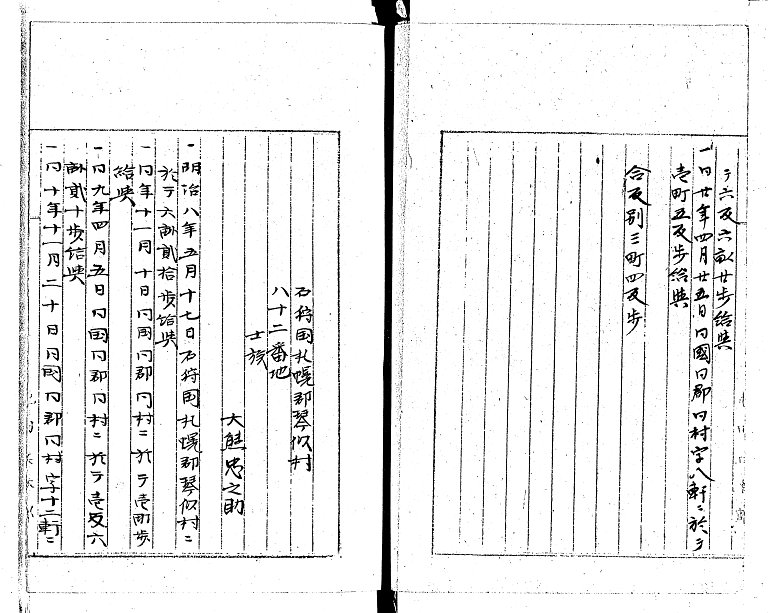 テ六反六畝廿歩給與
一同廿年四月廿五日同國同郡同村字八軒ニ於テ
壱町五反歩給與
合反別三町四反歩
石狩国札幌郡琴似村
八十二番地
士族
大熊忠之助
一明治八年五月十七日石狩国札幌郡琴似村ニ
於テ六畝貳拾歩給與
一同年十一月十日同國同郡同村ニ於テ壱町歩
給與
一同九年四月五日同国同郡同村ニ於テ壱反六
畝貳十歩給與
一同十年十一月二十日同国同郡同村字十二軒ニ